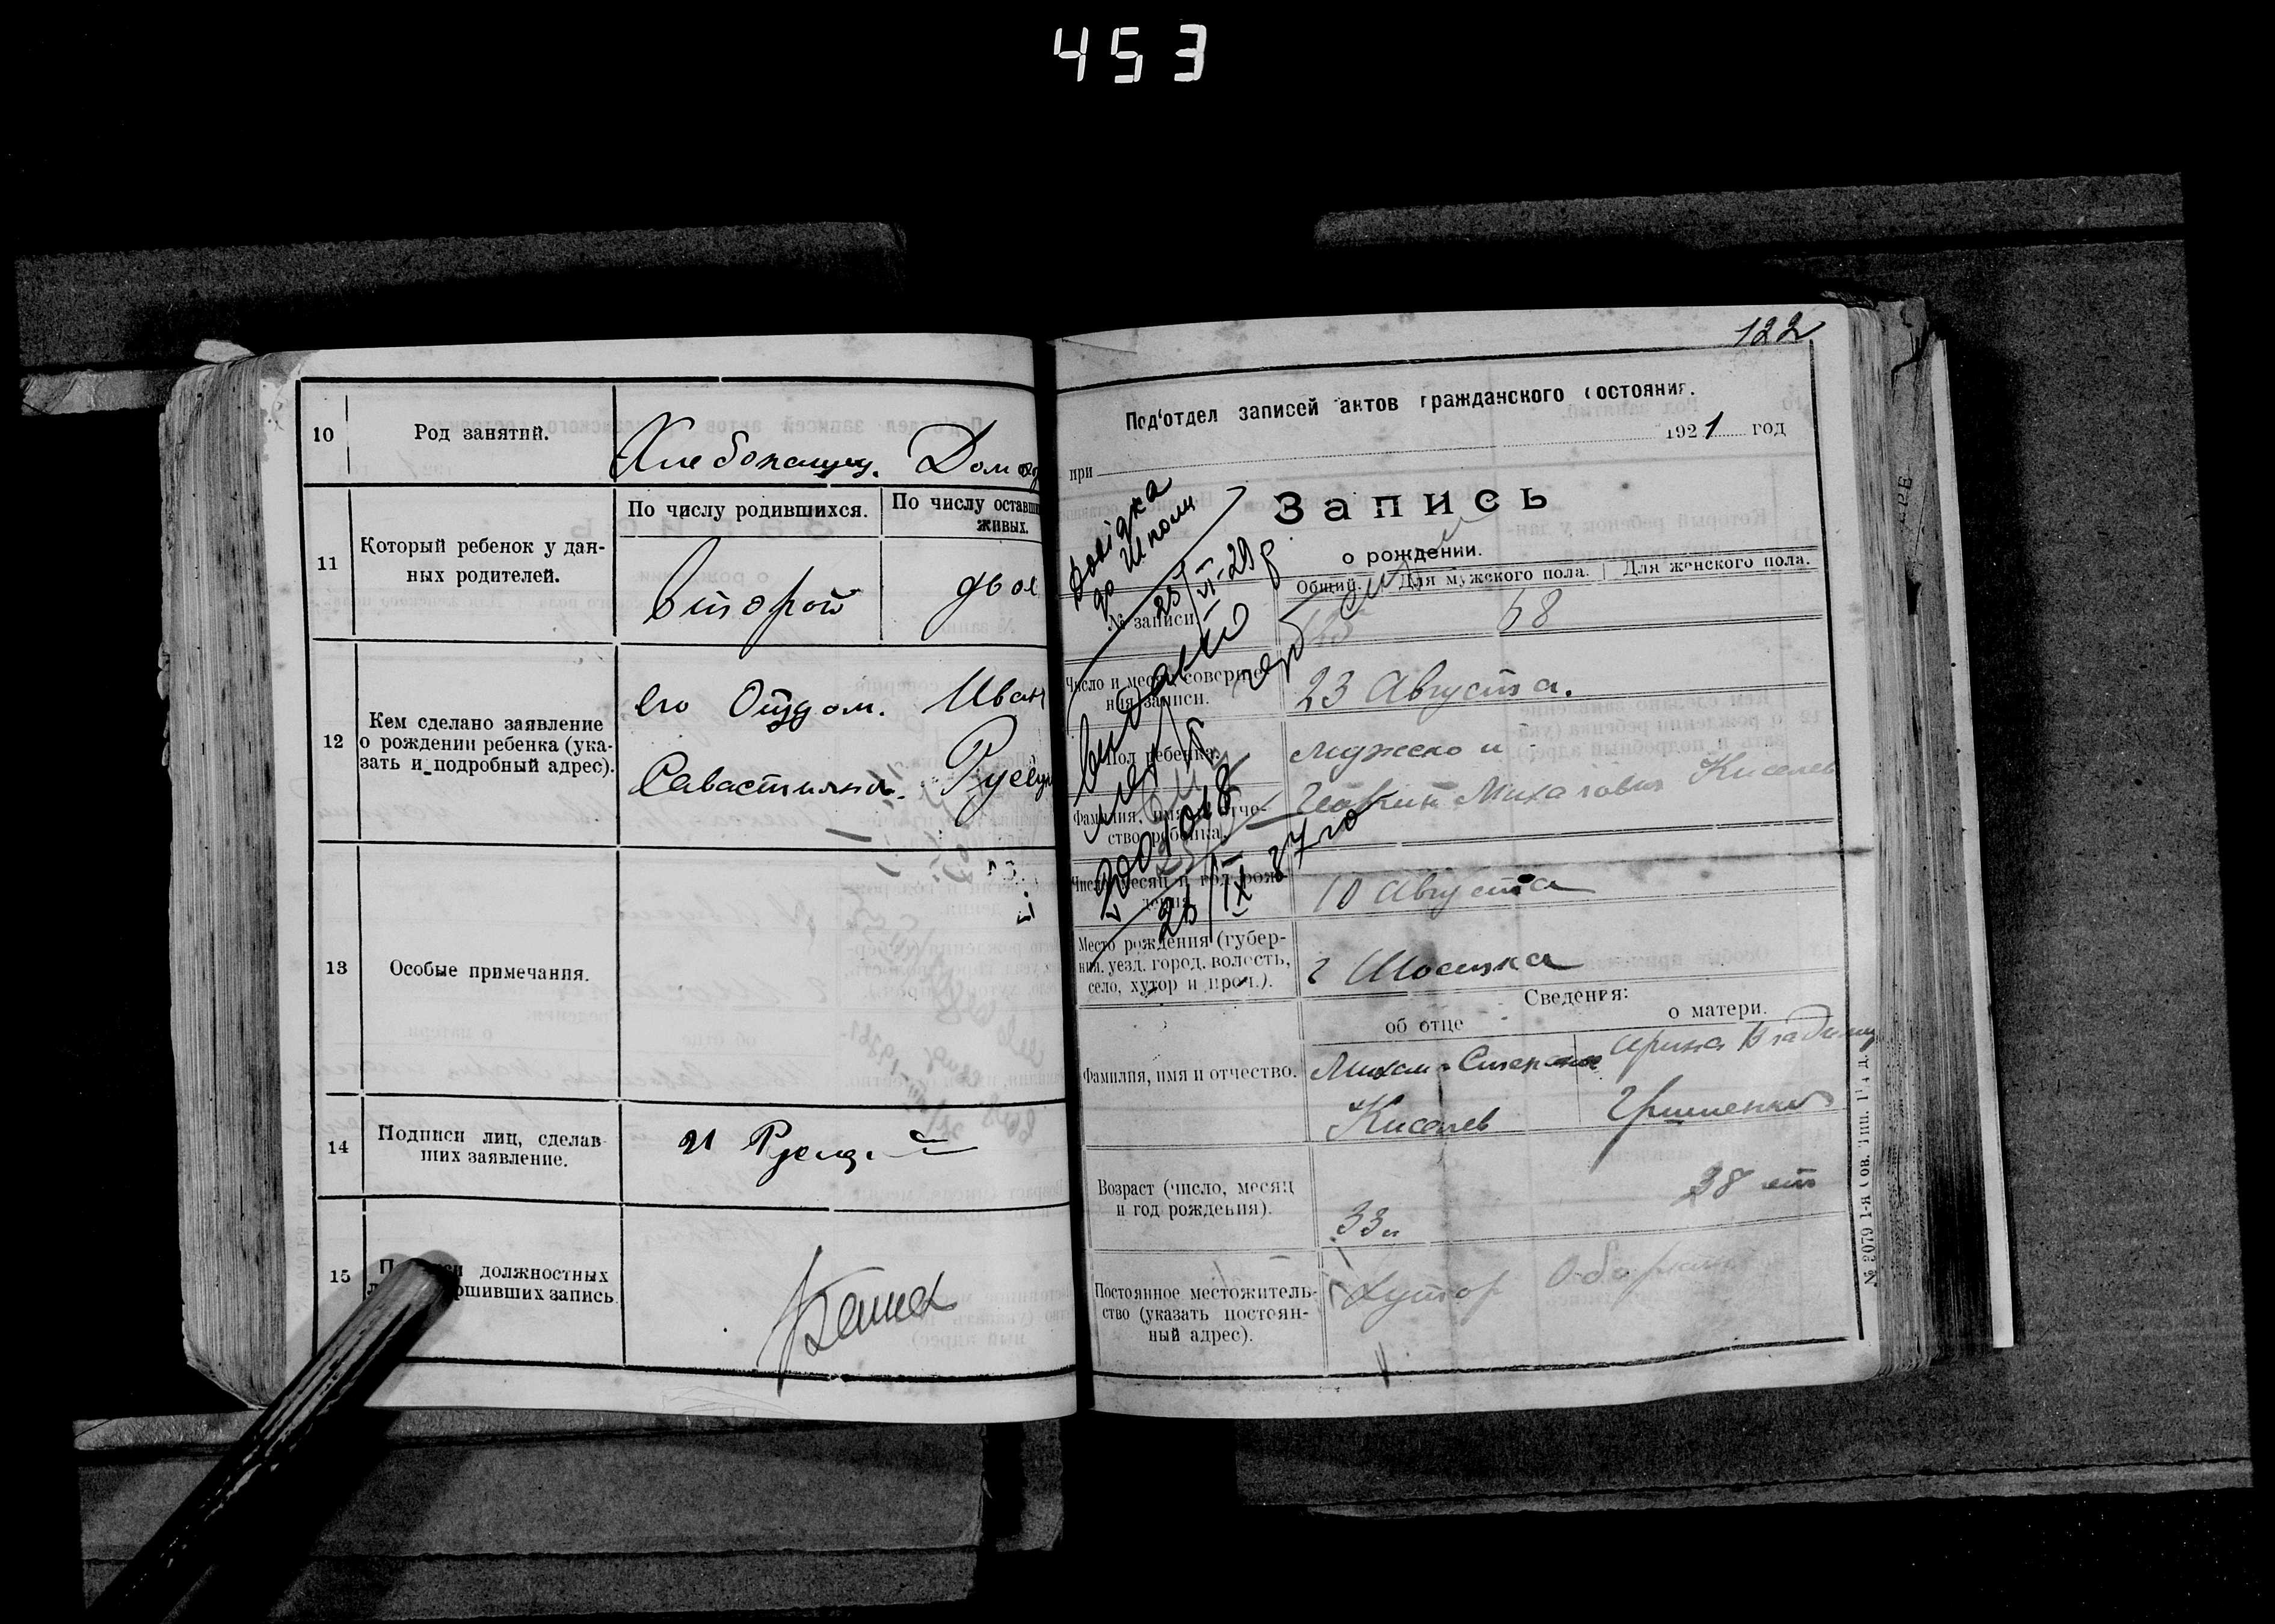 453
10
Род занятий.
Хлебопашец. Домохоз
11
Который ребенок у дан-
ных родителей.
По числу родившихся.
По числу оставши
живых.
второй
двое
12
Кем сделано заявление
о рождении ребенка (ука-
зать и подробный адрес).
его Отцом. Иван
Савастиянов.
13
Особые примечания.
14
Подписи лиц, сделав-
ших заявление.
15
должностных
ршивших запись
122
Под'отдел записей актов гражданского состояния.
при
1921 год
Запись
о рождении.
Общий.
Для мужского пола.
Для женского пола.
№ записи.
68
Довідка
до Школи
25/VI-29 р
видано
23/IX 37 го
Число и место соверше-
ния записи.
23 Августа.
Пол ребенка.
мужской
Фамилия, имя и отче-
ство ребенка.
Михаилович Киселев
Число, месяц и год рож-
дения.
10 Августа
Место рождения (губер-
ния, уезд, город, волость,
село, хутор и проч.).
г Шостка
Сведения:
об отце
о матери.
Фамилия, имя и отчество.
Михаил Степанов
Киселев
Ирина Владимир
Гриненко
Возраст (число, месяц
и год рождения).
33
38 лет
Постоянное местожитель-
ство (указать постоян-
ный адрес).
Хутор
№ 2079 1-я Сов. Тип.